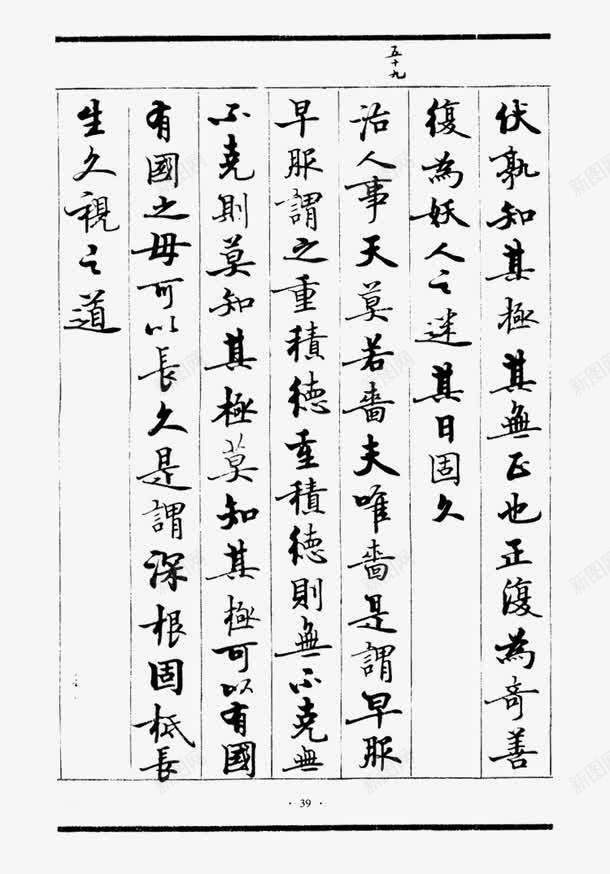 五十九
伏孰知其極其無正也正復為奇善
復為妖人之迷其日固久
治人事天莫若嗇夫唯嗇是謂早服
早服謂之重積德重積德則無不克無
不克則莫知其極莫知其極可以有國
有國之母可以長久是謂深根固柢長
生久視之道
· 39 ·